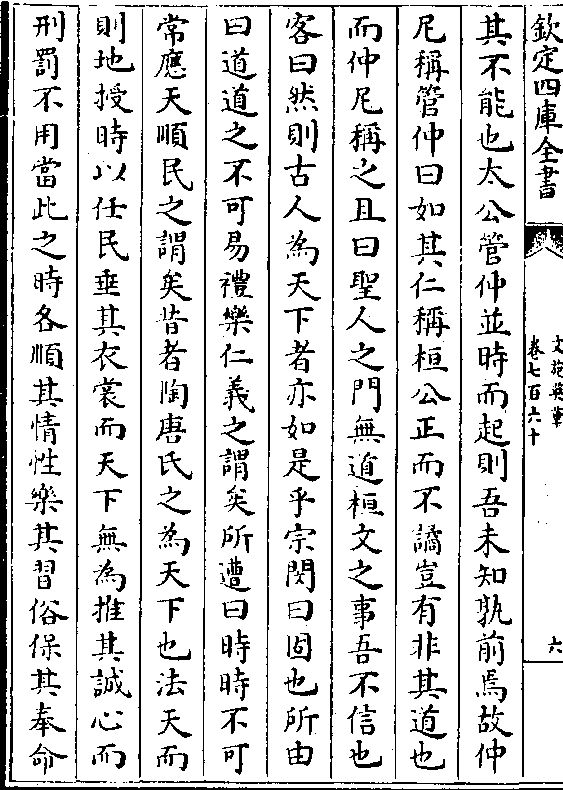 欽定四庫全書
文苑英華
卷七百六十
六
其不能也太公管仲並時而起則吾未知孰前焉故仲
尼稱管仲曰如其仁稱桓公正而不譎豈有非其道也
而仲尼稱之且曰聖人之門無道桓文之事吾不信也
客曰然則古人為天下者亦如是乎宗閔曰固也所由
曰道道之不可易禮樂仁義之謂矣所遭曰時時不可
常應天順民之謂矣昔者陶唐氏之為天下也法天而
則地授時以任民垂其衣裳而天下無為推其誠心而
刑罰不用當此之時各順其情性樂其習俗保其奉命